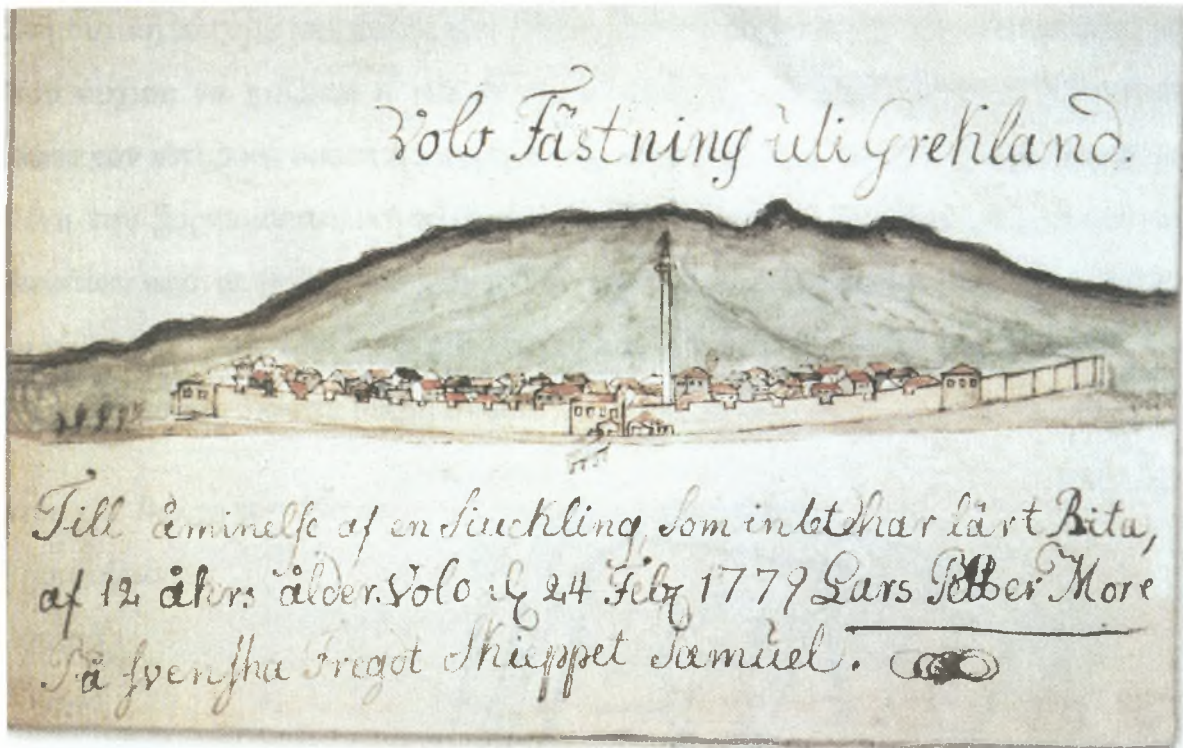 Volo Fästning uti Grekland.
Till åminelse af en siuckling som intet har lärt Rita,
af 12 åhrs ålder. Volo 24 1779 Lars Petter More
På svenska Fregot Skieppet Samuel.